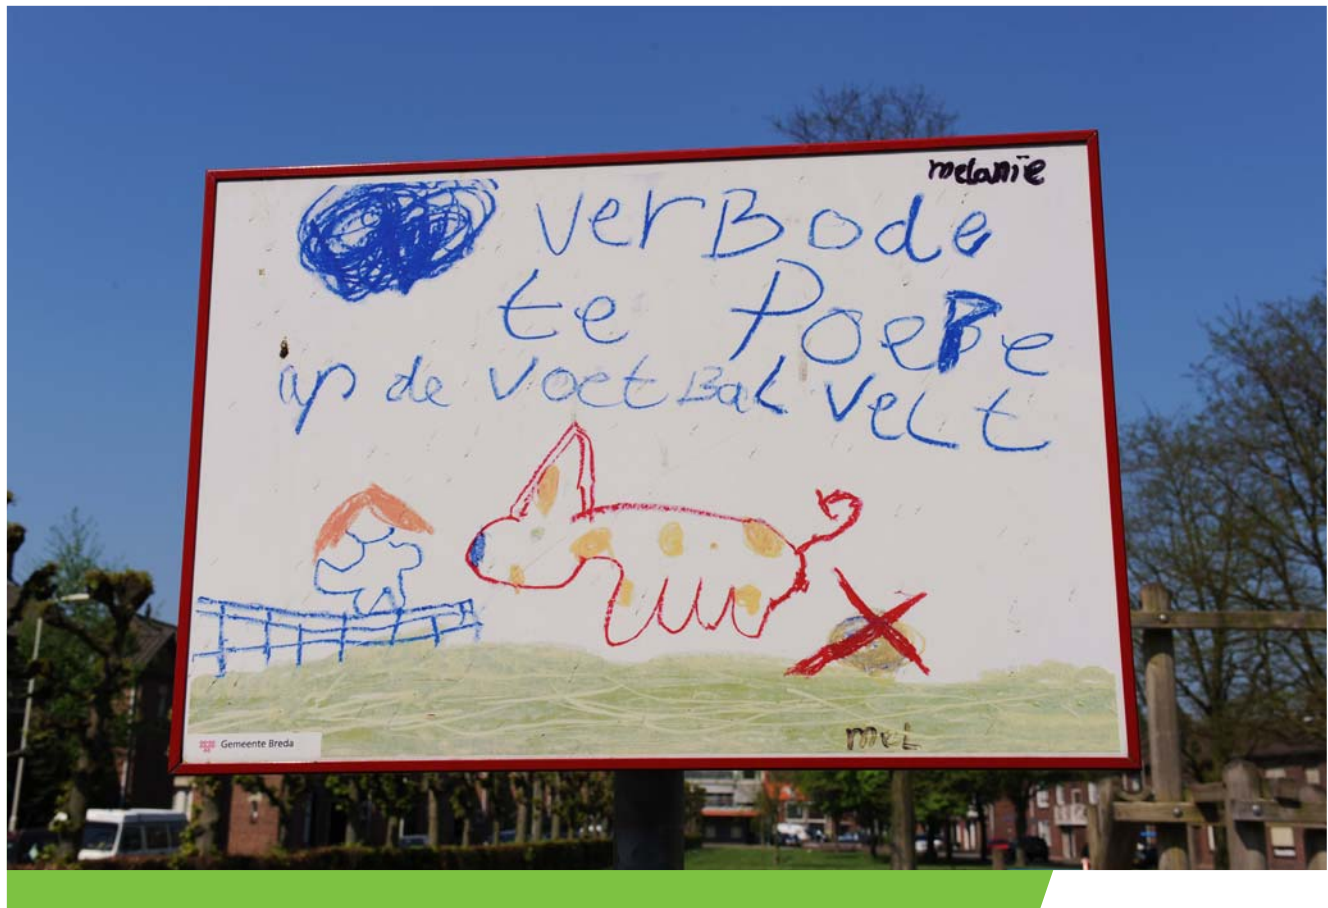 melanïe
verBode
te PoePe
op de voetBal velt
mel
Gemeente Breda